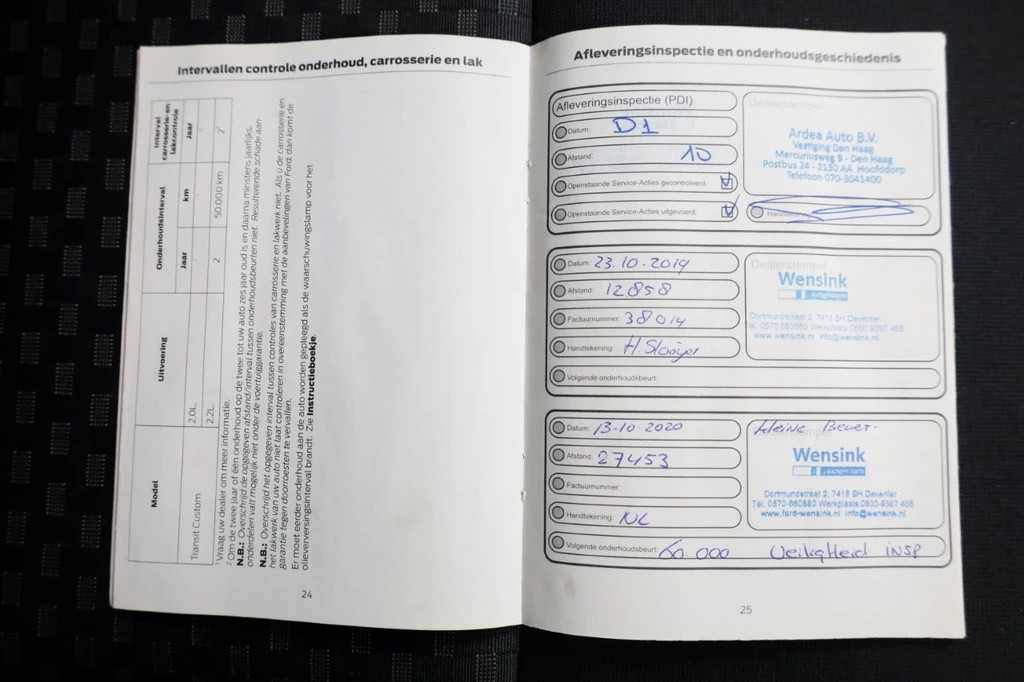 Intervallen controle onderhoud, carrosserie en lak
Model
Uitvoering
Onderhoudsinterval
Interval carrosserie-en lakcontrole
Jaar
km
Jaar
Transit Custom
2.0L
2.2L
2
50.000 km
2
Vraag uw dealer om meer informatie.
² Om de twee jaar of één onderhoud op de twee tot uw auto zes jaar oud is en daarna minstens jaarlijks.
N.B.: Overschrijd de opgegeven afstand/interval tussen onderhoudsbeurten niet. Resulterende schade aan
onderdelen valt mogelijk niet onder de voertuiggarantie.
N.B.: Overschrijd het opgegeven interval tussen controles van carrosserie en lakwerk niet. Als u de carrosserie en
het lakwerk van uw auto niet laat controleren in overeenstemming met de aanbevelingen van Ford, dan komt de
garantie tegen doorroesten te vervallen.
Er moet eerder onderhoud aan de auto worden gepleegd als de waarschuwingslamp voor het
olieverversingsinterval brandt. Zie Instructieboekje.
24
Afleveringsinspectie en onderhoudsgeschiedenis
Afleveringsinspectie (PDI)
Datum: D1
Afstand: 10
Openstaande Service-Acties gecontroleerd:
Openstaande Service-Acties uitgevoerd:
Dealerstempel
Ardea Auto B.V.
Vestiging Den Haag
Mercuriusweg 9 - Den Haag
Postbus 24 - 2130 AA Hoofddorp
Telefoon 070-3041400
Datum: 23.10-2019
Afstand: 12858
Factuurnummer: 38014
Handtekening:
Volgende onderhoudsbeurt:
Dealerstempel
Wensink
Dortmundstraat 2, 7418 BH Deventer
Tel. 0570-660660 Werkplaats 0800-9367 465
www.wensink.nl info@wensink.nl
Datum: 13-10-2020
Afstand: 27453
Factuurnummer:
Handtekening: NL
Volgende onderhoudsbeurt: 60.000 Veiligheid INSP
kleine Beurt
Wensink
Dortmundstraat 2, 7418 BH Deventer
Tel. 0570-660660 Werkplaats 0800-9367 465
www.ford-wensink.nl info@wensink.nl
25